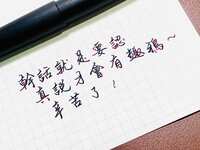 幹話就是要認
真說才會有趣鴉～
辛苦了！